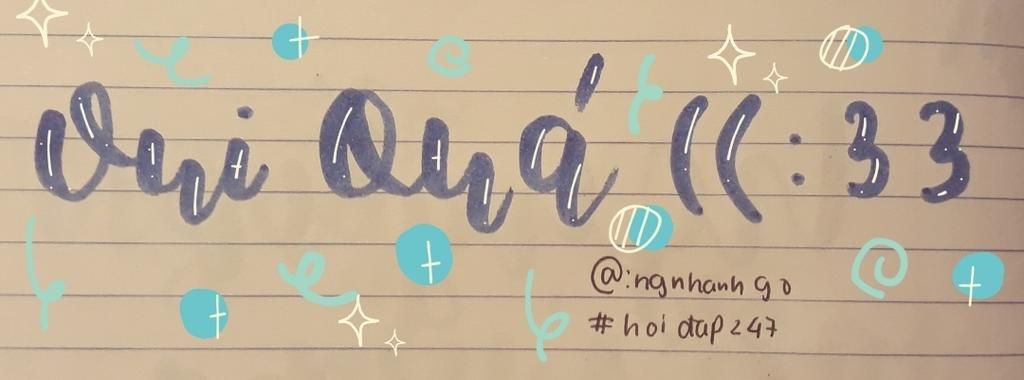 Vui Quá ((:33
@:ngnhanhgo
#hoidap247